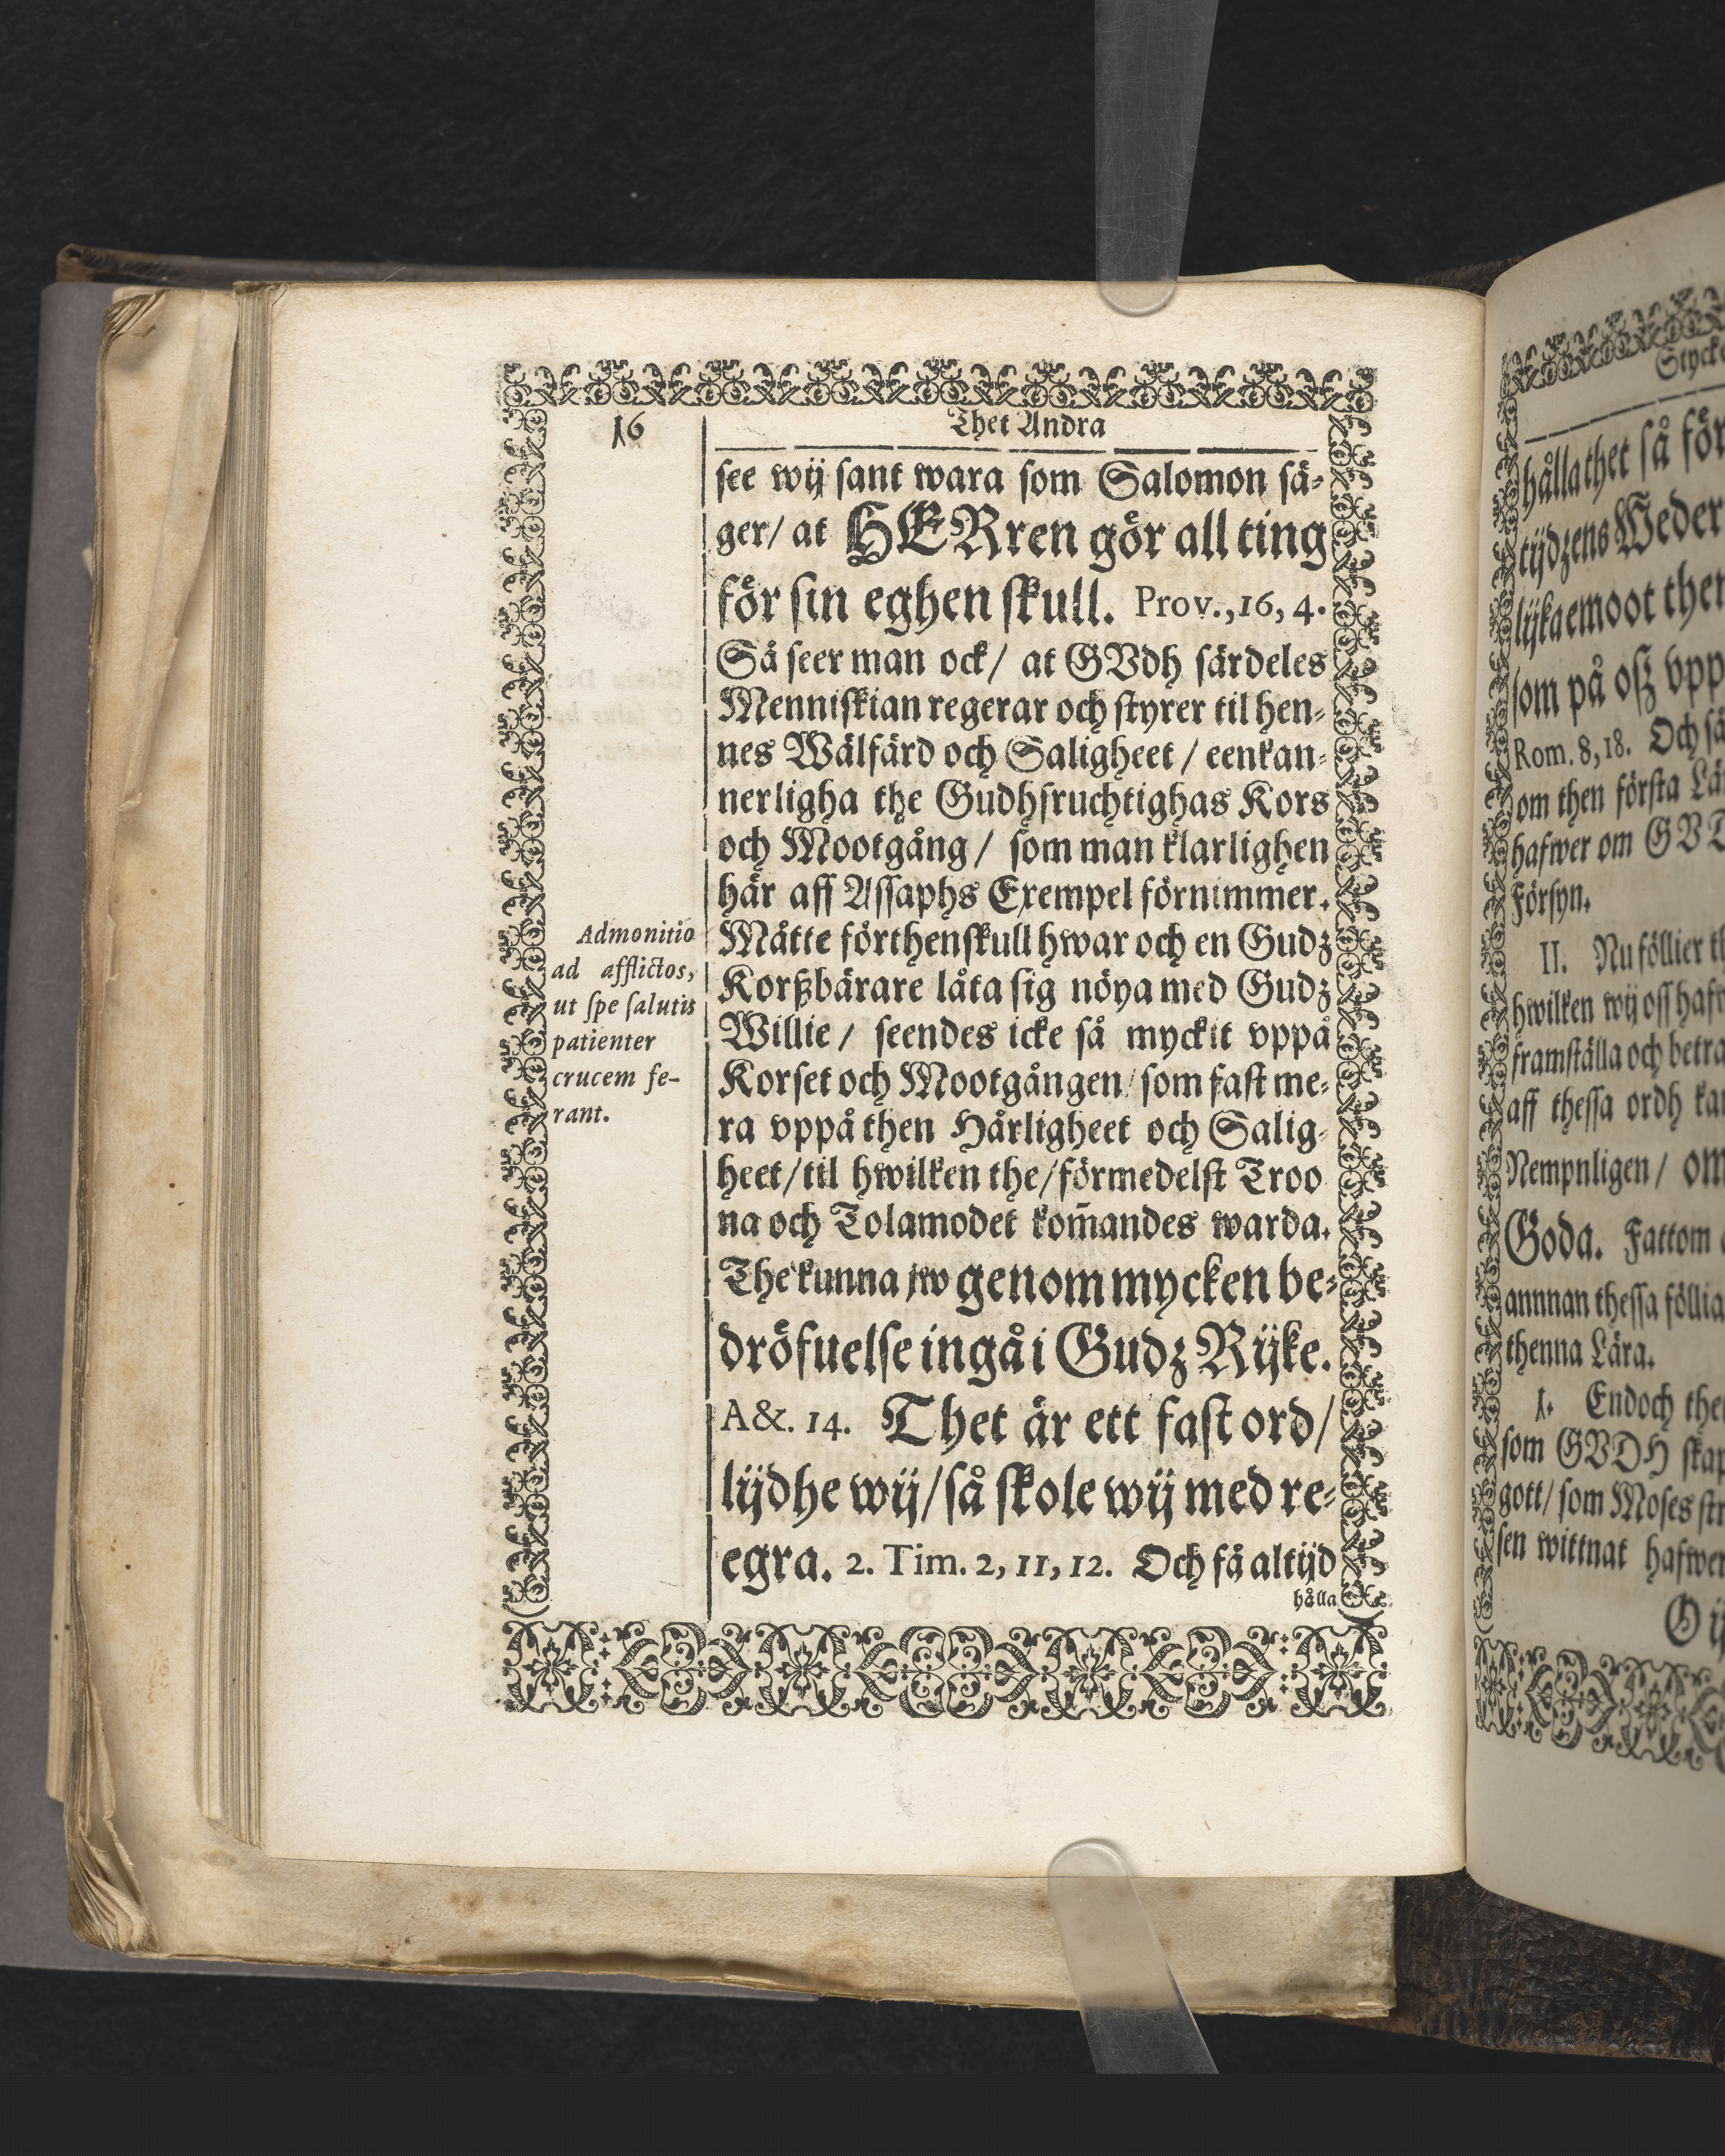 16
Thet Andra
see wij sant wara som Salomon sä-
ger/ at HERren gör all ting
för sin eghen skull. Prov., 16, 4.
Så seer man ock/ at GVdh särdeles
Menniskian regerar och styrer til hen-
nes Wälfärd och Saligheet / eenkan-
nerligha the Gudhfruchtighas Kors
och Mootgång / som man klarlighen
här aff Assaphs Exempel förnimmer.
Måtte förthenskull hwar och en Gudz
Korßbärare låta sig nöya med Gudz
Willie / seendes icke så myckit vppå
Korset och Mootgången/ som fast me-
ra vppå then Härligheet och Salig-
heet/ til hwilken the/ förmedelst Troo
na och Tolamodet kom̃andes warda.
The kunna jw genom mycken be-
dröfuelse ingå i Gudz Rijke.
A&. 14. Thet är ett fast ord/
lijdhe wij/ så skole wij med re-
egra. 2. Tim. 2, 11, 12. Och få altijd
hålla
Admonitio
ad afflictos,
ut spe salutis
patienter
crucem fe-
rant.
Styck
hålla thet så för
tijdzens Weder
lijka emoot then
som på osz vpp
Rom. 8, 18. Och så
om then första Lä
hafwer om GVD
Försyn.
II. Nu föllier th
hwilken wij oss haf
framställa och betra
aff thessa ordh kan
Nempnligen / om
Goda. Fattom
annnan thessa föllia
thenna Lära.
1. Endoch the
som GVDH skap
gott/ som Moses str
sen wittnat hafwer